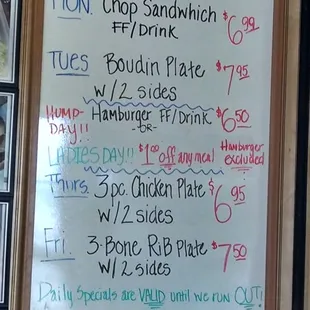 MON. Chop Sandwhich $6.99
FF/Drink
TUES Boudin Plate $7.95
w/2 sides
HUMP-DAY!! Hamburger FF/Drink $6.50
-OR-
LADIES DAY!! $1.00 off any meal Hamburger excluded
Thurs. 3 pc. Chicken Plate $6.95
w/2 sides
Fri. 3-Bone RiB Plate $7.50
w/2 sides
Daily Specials are VALID until we run OUT!